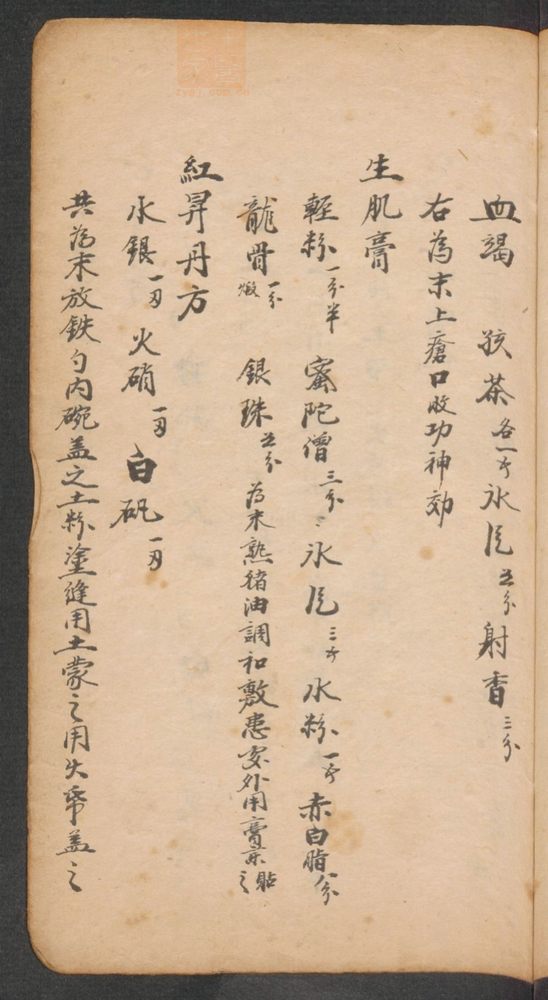 血竭 孩茶各一子 冰片五分 射香三分
右為末上瘡口收功神効
生肌膏
輕粉一分半 蜜陀僧三分 冰片三子 水粉一子 赤白脂分
龍骨煅一分 銀珠五分 為末熟猪油調和敷患處外用膏藥貼之
紅昇丹方
水銀一刃 火硝一刃 白矾一刃
共為末放鉄勺内碗盖之土粉塗縫用土蒙之用火帋盖之